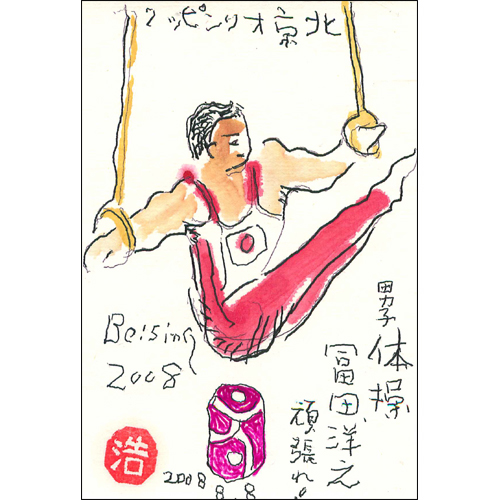 北京オリンピック
男子体操
冨田洋之
頑張れ!!
Beijing
2008
浩
2008 8.8